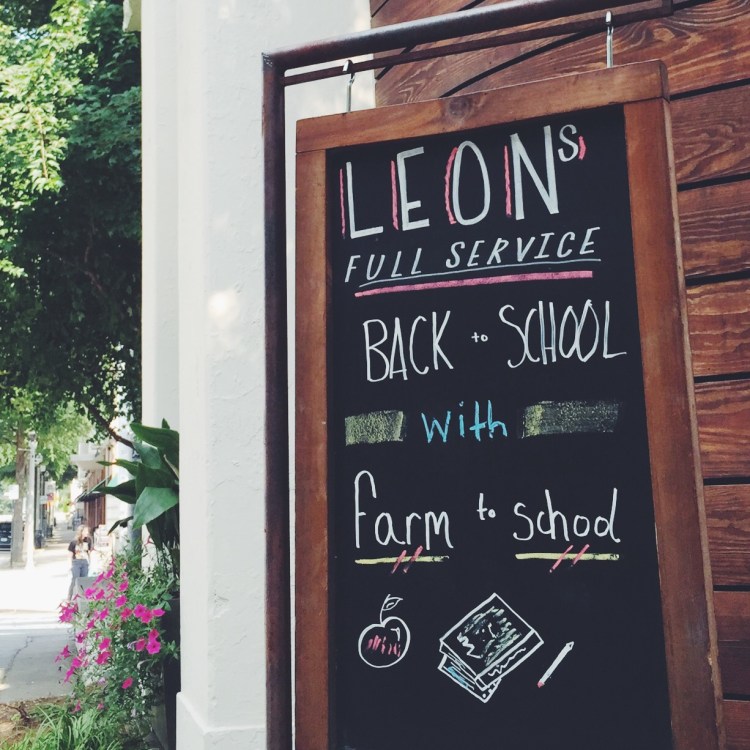 LEONS
FULL SERVICE
BACK to SCHOOL
with
farm to school